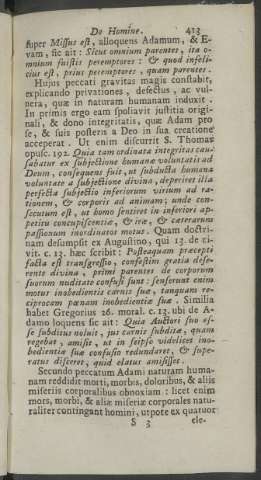 De Homine. 413
super Missus est, alloquens Adamum, & E-
vam, sic ait: Sicut omnium parentes, ita o-
mnium fuistis peremptores: & quod infeli-
cius est, prius peremptores, quam parentes.
Hujus peccati gravitas magis constabit,
explicando privationes, defectus, ac vul-
nera, quæ in naturam humanam induxit.
In primis ergo eam spoliavit justitia origi-
nali, & dono integritatis, quæ Adam pro
se, & suis posteris a Deo in sua creatione
acceperat. Ut enim discurrit S. Thomas
opusc. 192. Quia tam ordinata integritas cau-
sabatur ex subjectione humanæ voluntatis ad
Deum, consequens fuit, ut subducta humana
voluntate a subjectione divina, deperiret illa
perfecta subjectio inferiorum virium ad ra-
tionem, & corporis ad animam; unde con-
secutum est, ut homo sentiret in inferiori ap-
petitu concupiscentiæ, & iræ, & cæterarum
passionum inordinatos motus. Quam doctri-
nam desumpsit ex Augustino, qui 13. de ci-
vit. c. 13. hæc scribit: Posteaquam præcepti
facta est transgressio, confestim gratia dese-
rente divina, primi parentes de corporum
suorum nuditate confusi sunt: senserunt enim
motus inobedientis carnis suæ, tanquam re-
ciprocam pœnam inobedientiæ suæ. Similia
habet Gregorius 26. moral. c. 13. ubi de A-
damo loquens sic ait: Quia Auctori suo es-
se subditus noluit, jus carnis subditæ, quam
regebat, amisit, ut in seipso videlicet ino-
bedientiæ suæ confusio redundaret, & supe-
ratus disceret, quid elatus amisisset.
Secundo peccatum Adami naturam huma-
nam reddidit morti, morbis, doloribus, & aliis
miseriis corporalibus obnoxiam: licet enim
mors, morbi, & aliæ miseriæ corporales natu-
raliter contingant homini, utpote ex quatuor
S 3 ele-